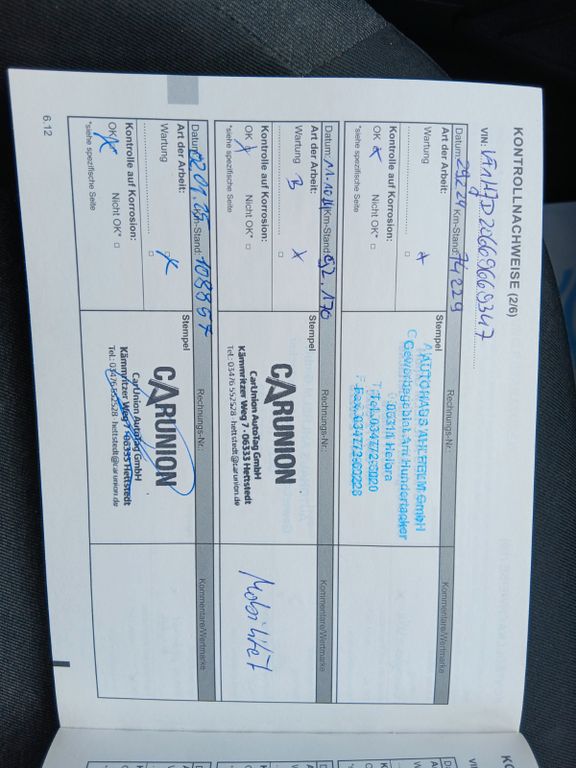 KONTROLLNACHWEISE (2/6)
VIN:
Datum: Km-Stand: 74229
Art der Arbeit:
Wartung x
Kontrolle auf Korrosion:
OK x Nicht OK* □
*siehe spezifische Seite
Stempel
AUTOHAUS AHLHELM GmbH
Gewerbegebiet Am Hundertacker
Tel. 034772-0020
Rechnungs-Nr.:
Kommentare/Wertmarke
Datum: 11.10 Km-Stand: 92.170
Art der Arbeit:
Wartung B x
Kontrolle auf Korrosion:
OK x Nicht OK* □
*siehe spezifische Seite
Stempel
CARUNION
CarUnion AutoTag GmbH
Kämmritzer Weg 7 · 06333 Hettstedt
Tel.: 03476 552528 · hettstedt@carunion.de
Rechnungs-Nr.:
Kommentare/Wertmarke
Mobilität
Datum: 02.01.15 Km-Stand: 108857
Art der Arbeit:
Wartung x
Kontrolle auf Korrosion:
OK x Nicht OK* □
*siehe spezifische Seite
Stempel
CARUNION
CarUnion AutoTag GmbH
Kämmritzer Weg 7 · 06333 Hettstedt
Tel.: 03476 552528 · hettstedt@carunion.de
Rechnungs-Nr.:
Kommentare/Wertmarke
6.12